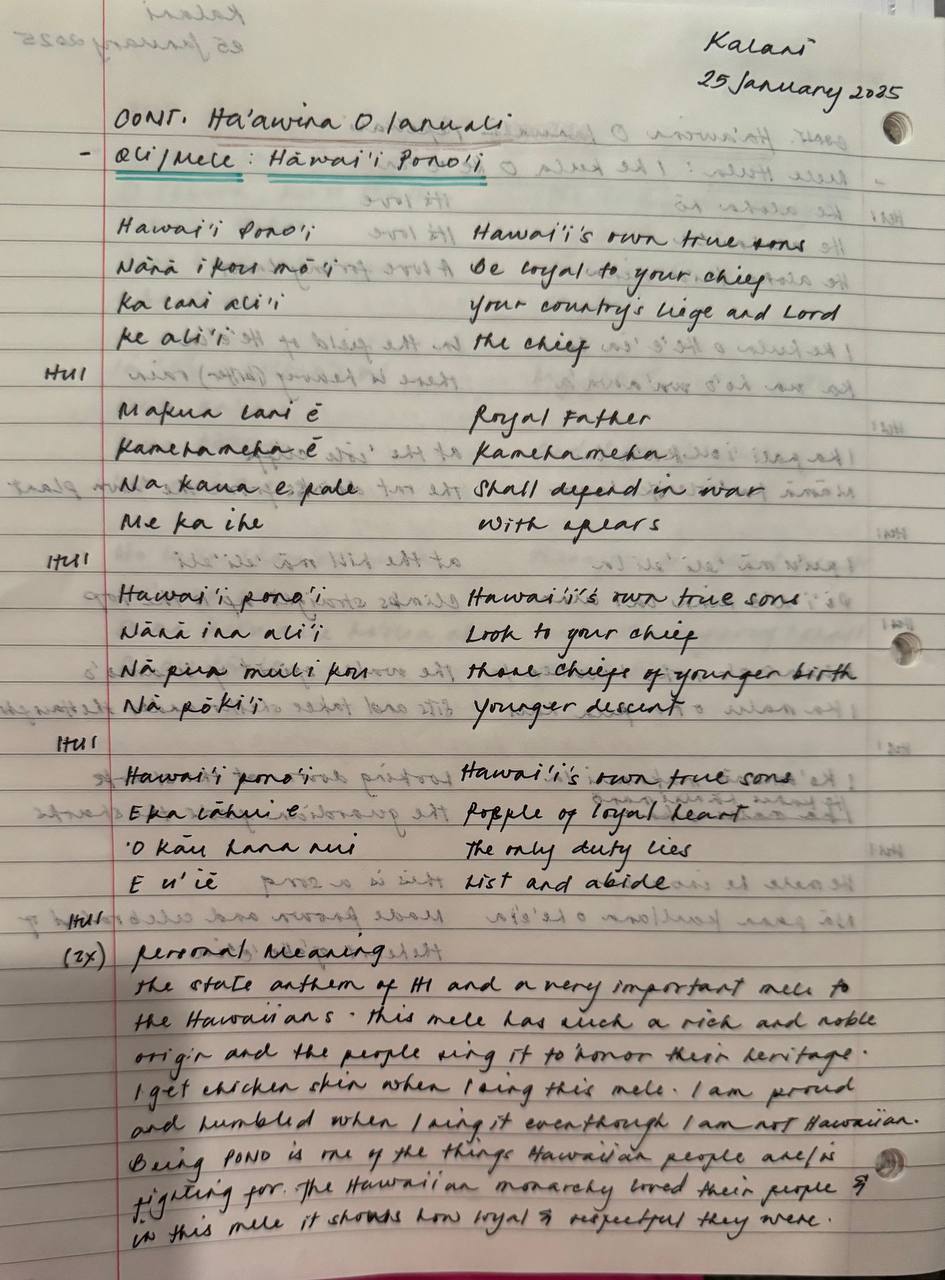 Kalani
25 January 2025
CONT. Ha'awina O Ianuali
- Oli/Mele: Hāwai'i Pono'i
Hawai'i Pono'i Hawai'i's own true sons
Nānā i kou mō'i Be loyal to your chief
Ka lani ali'i your country's liege and Lord
Ke ali'i the chief
HUI
Makua lani ē Royal Father
Kamehameha ē Kamehameha
Na kaua e pale Shall defend in war
Me ka ihe with spears
HUI
Hawai'i pono'i Hawai'i's own true sons
Nānā ina ali'i Look to your chief
Nā pua muli kou those chiefs of younger birth
Nā pōki'i younger descent
HUI
Hawai'i pono'i Hawai'i's own true sons
E ka lāhui ē People of loyal heart
'O kāu hana nui The only duty lies
E u' iē List and abide
HUI
(2x) Personal Meaning
the state anthem of HI and a very important mele to
the Hawaiians. this mele has such a rich and noble
origin and the people sing it to honor their heritage.
I get chicken skin when I sing this mele. I am proud
and humbled when I sing it eventhough I am not Hawaiian.
Being PONO is one of the things Hawaiian people are/is
fighting for. The Hawaiian monarchy loved their people &
in this mele it shows how loyal & respectful they were.